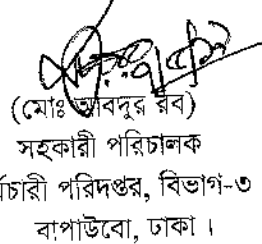 (মোঃ আবদুর রব)
সহকারী পরিচালক
র্মচারী পরিদপ্তর, বিভাগ-৩
বাপাউবো, ঢাকা ।